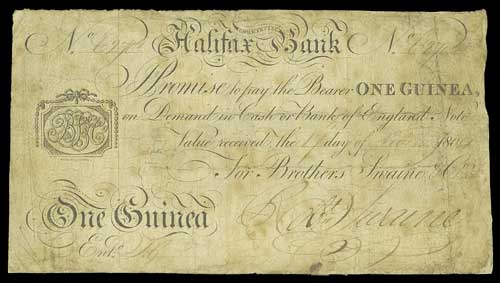 No Halifax Bank No
I Promise to pay the Bearer ONE GUINEA,
on Demand in Cash or Bank of England Note
Value received the day of 180
For Brothers Swaine & Co
One Guinea Swaine
Entd.